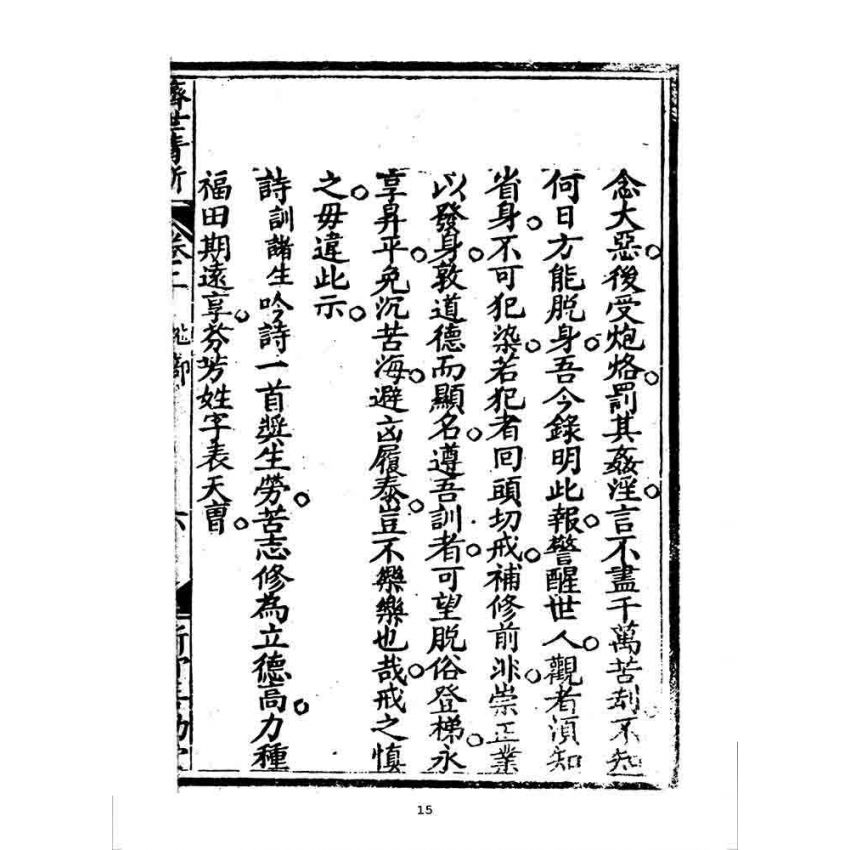 念大惡。後受炮烙。罰其姦淫。言不盡千萬苦刦。不知
何日方能脫身。吾今錄明此報。警醒世人。觀者須知
省身。不可犯染。若犯者回頭切戒。補修前非。崇正業
以發身。敦道德而顯名。遵吾訓者。可望脫俗登梯。永
享昇平。免沉苦海。避凶履泰。豈不樂樂也哉。戒之慎
之。毋違此示。
詩訓諸生吟詩一首獎生勞。苦志修為立德高。力種
福田期遠享。芬芳姓字表天曹。
濟世
卷二
六
15